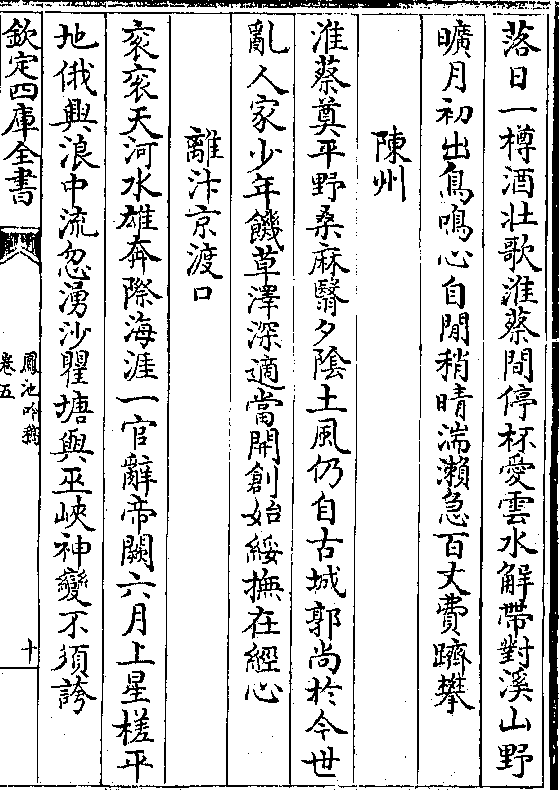 落日一樽酒壮歌淮蔡間停杯愛雲水解帶對溪山野
曠月初出鳥鳴心自閒稍晴湍瀬急百丈費躋攀
陳州
淮蔡奠平野桑麻翳夕陰土風仍自古城郭尚於今世
亂人家少年饑草澤深適當開創始綏撫在經心
離汴京渡口
衮衮天河水雄奔際海涯一官辭帝闕六月上星槎平
地俄興浪中流忽湧沙瞿塘與巫峽神變不須誇
欽定四庫全書
鳳池吟稿
卷五
十